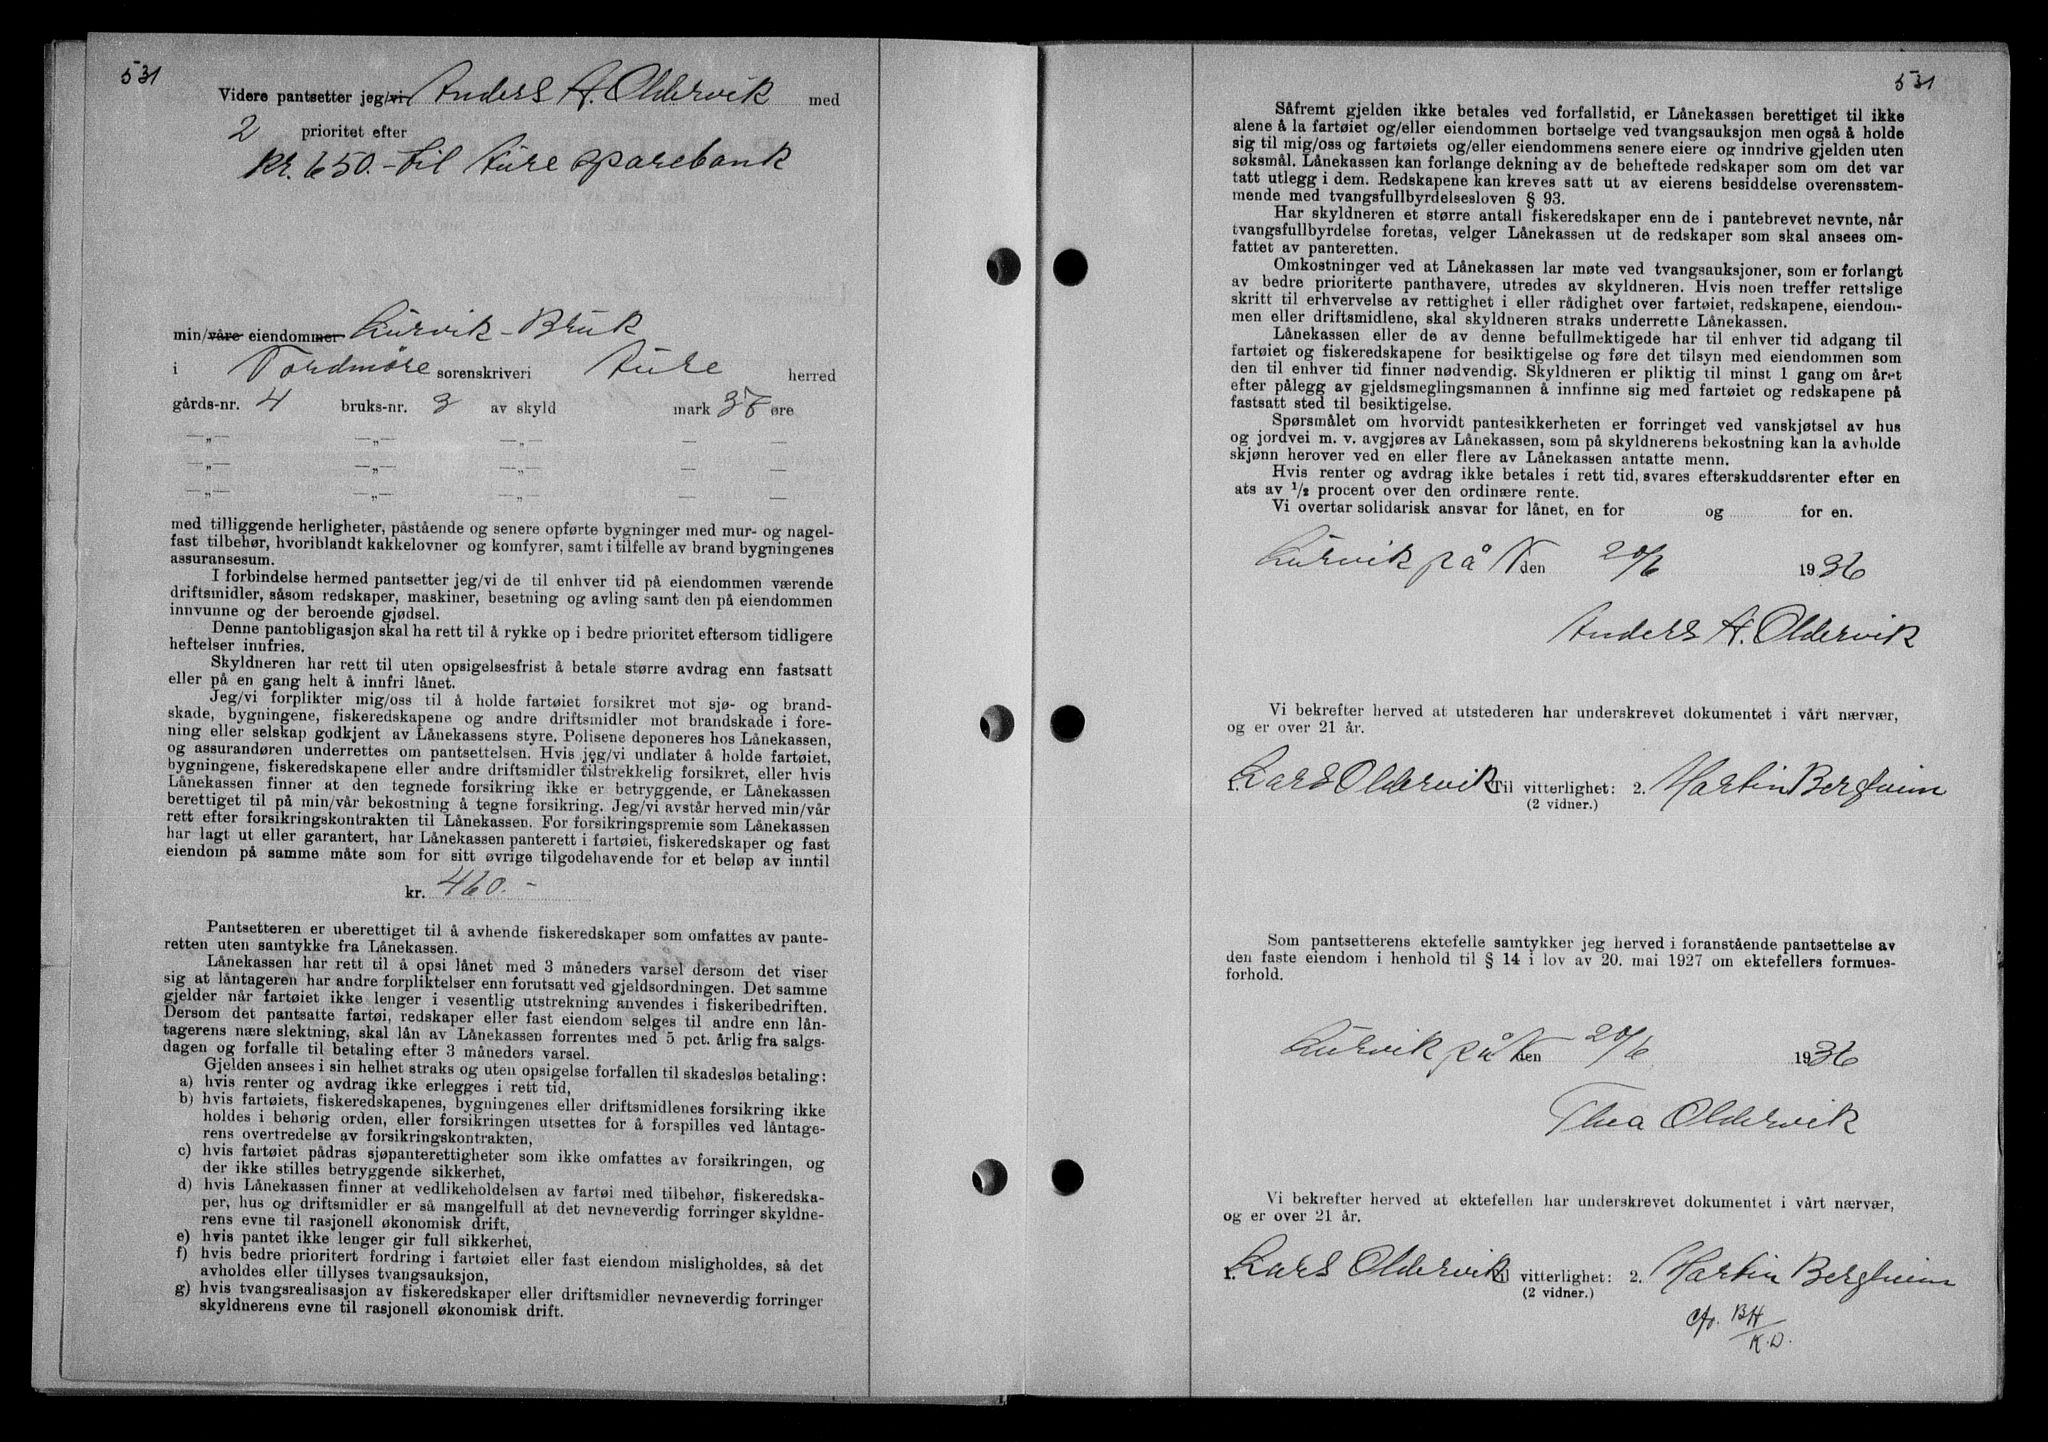 531
Videre pantsetter jeg/vi Anders A. Oldervik med
2 prioritet efter
kr. 650.- til Aure sparebank
min/våre eiendommer Lurvik-Bruk
i Nordmøre sorenskriveri Aure herred
gårds-nr. 4 bruks-nr. 3 av skyld mark 38 øre
—„— —„— —„— — —
—„— —„— —„— — —
—„— —„— —„— — —
med tilliggende herligheter, påstående og senere opførte bygninger med mur- og nagel-
fast tilbehør, hvoriblandt kakkelovner og komfyrer, samt i tilfelle av brand bygningenes
assuransesum.
I forbindelse hermed pantsetter jeg/vi de til enhver tid på eiendommen værende
driftsmidler, såsom redskaper, maskiner, besetning og avling samt den på eiendommen
innvunne og der beroende gjødsel.
Denne pantobligasjon skal ha rett til å rykke op i bedre prioritet eftersom tidligere
heftelser innfries.
Skyldneren har rett til uten opsigelsesfrist å betale større avdrag enn fastsatt
eller på en gang helt å innfri lånet.
Jeg/vi forplikter mig/oss til å holde fartøiet forsikret mot sjø- og brand-
skade, bygningene, fiskeredskapene og andre driftsmidler mot brandskade i fore-
ning eller selskap godkjent av Lånekassens styre. Polisene deponeres hos Lånekassen,
og assurandøren underrettes om pantsettelsen. Hvis jeg/vi undlater å holde fartøiet,
bygningene, fiskeredskapene eller andre driftsmidler tilstrekkelig forsikret, eller hvis
Lånekassen finner at den tegnede forsikring ikke er betryggende, er Lånekassen
berettiget til på min/vår bekostning å tegne forsikring. Jeg/vi avstår herved min/vår
rett efter forsikringskontrakten til Lånekassen. For forsikringspremie som Lånekassen
har lagt ut eller garantert, har Lånekassen panterett i fartøiet, fiskeredskaper og fast
eiendom på samme måte som for sitt øvrige tilgodehavende for et beløp av inntil
kr. 460.-
Pantsetteren er uberettiget til å avhende fiskeredskaper som omfattes av pante-
retten uten samtykke fra Lånekassen.
Lånekassen har rett til å opsi lånet med 3 måneders varsel dersom det viser
sig at låntageren har andre forpliktelser enn forutsatt ved gjeldsordningen. Det samme
gjelder når fartøiet ikke lenger i vesentlig utstrekning anvendes i fiskeribedriften.
Dersom det pantsatte fartøi, redskaper eller fast eiendom selges til andre enn lån-
tagerens nære slektning, skal lån av Lånekassen forrentes med 5 pct. årlig fra salgs-
dagen og forfalle til betaling efter 3 måneders varsel.
Gjelden ansees i sin helhet straks og uten opsigelse forfallen til skadesløs betaling:
a) hvis renter og avdrag ikke erlegges i rett tid,
b) hvis fartøiets, fiskeredskapenes, bygningenes eller driftsmidlenes forsikring ikke
holdes i behørig orden, eller forsikringen utsettes for å forspilles ved låntage-
rens overtredelse av forsikringskontrakten,
c) hvis fartøiet pådras sjøpanterettigheter som ikke omfattes av forsikringen, og
der ikke stilles betryggende sikkerhet,
d) hvis Lånekassen finner at vedlikeholdelsen av fartøi med tilbehør, fiskeredska-
per, hus og driftsmidler er så mangelfull at det nevneverdig forringer skyldne-
rens evne til rasjonell økonomisk drift,
e) hvis pantet ikke lenger gir full sikkerhet,
f) hvis bedre prioritert fordring i fartøiet eller fast eiendom misligholdes, så det
avholdes eller tillyses tvangsauksjon,
g) hvis tvangsrealisasjon av fiskeredskaper eller driftsmidler nevneverdig forringer
skyldnerens evne til rasjonell økonomisk drift.
531
Såfremt gjelden ikke betales ved forfallstid, er Lånekassen berettiget til ikke
alene å la fartøiet og/eller eiendommen bortselge ved tvangsauksjon men også å holde
sig til mig/oss og fartøiets og/eller eiendommens senere eiere og inndrive gjelden uten
søksmål. Lånekassen kan forlange dekning av de beheftede redskaper som om det var
tatt utlegg i dem. Redskapene kan kreves satt ut av eierens besiddelse overensstem-
mende med tvangsfullbyrdelsesloven § 93.
Har skyldneren et større antall fiskeredskaper enn de i pantebrevet nevnte, når
tvangsfullbyrdelse foretas, velger Lånekassen ut de redskaper som skal ansees om-
fattet av panteretten.
Omkostninger ved at Lånekassen lar møte ved tvangsauksjoner, som er forlangt
av bedre prioriterte panthavere, utredes av skyldneren. Hvis noen treffer rettslige
skritt til erhvervelse av rettighet i eller rådighet over fartøiet, redskapene, eiendom-
men eller driftsmidlene, skal skyldneren straks underrette Lånekassen.
Lånekassen eller de av denne befullmektigede har til enhver tid adgang til
fartøiet og fiskeredskapene for besiktigelse og føre det tilsyn med eiendommen som
den til enhver tid finner nødvendig. Skyldneren er pliktig til minst 1 gang om året
efter pålegg av gjeldsmeglingsmannen å innfinne sig med fartøiet og redskapene på
fastsatt sted til besiktigelse.
Spørsmålet om hvorvidt pantesikkerheten er forringet ved vanskjøtsel av hus
og jordvei m. v. avgjøres av Lånekassen, som på skyldnerens bekostning kan la avholde
skjønn herover ved en eller flere av Lånekassen antatte menn.
Hvis renter og avdrag ikke betales i rett tid, svares efterskuddsrenter efter en
sats av 1/2 procent over den ordinære rente.
Vi overtar solidarisk ansvar for lånet, en for og for en.
Lurvik på N den 20/6 1936
Anders A. Oldervik
Vi bekrefter herved at utstederen har underskrevet dokumentet i vårt nærvær,
og er over 21 år.
1. Lars Oldervik Til vitterlighet: 2. Martin Bergheim
(2 vidner.)
Som pantsetterens ektefelle samtykker jeg herved i foranstående pantsettelse av
den faste eiendom i henhold til § 14 i lov av 20. mai 1927 om ektefellers formues-
forhold.
Lurvik på N den 20/6 1936
Thea Oldervik
Vi bekrefter herved at ektefellen har underskrevet dokumentet i vårt nærvær,
og er over 21 år.
1. Lars Oldervik Til vitterlighet: 2. Martin Bergheim
(2 vidner.)
cfr. BH/K.D.